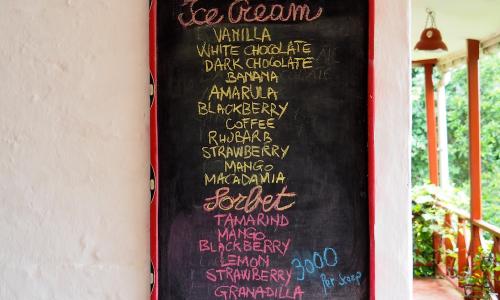 Ice Cream
VANILLA
WHITE CHOCOLATE
DARK CHOCOLATE
BANANA
AMARULA
BLACKBERRY
COFFEE
RHUBARB
STRAWBERRY
MANGO
MACADAMIA
Sorbet
TAMARIND
MANGO
BLACKBERRY
LEMON
STRAWBERRY
GRANADILLA
3000
Per Scoop